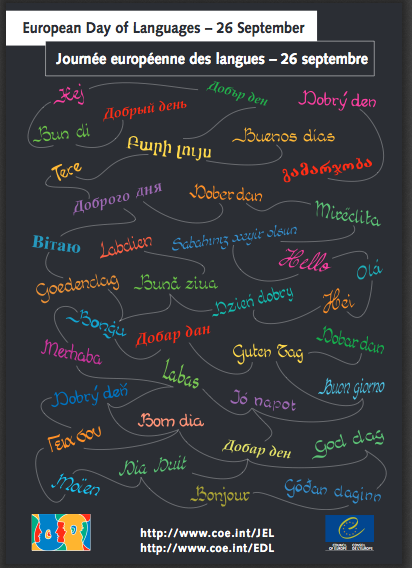 European Day of Languages – 26 September
Journée européenne des langues – 26 septembre
Hej
Добрый день
Добър ден
Dobrý den
Bun di
Բարի լույս
Buenos días
Tere
გამარჯობა
Доброго дня
Dober dan
Mirëdita
Вiтаю
Labdien
Sabahınız xeyir olsun
Hello
Olá
Goedendag
Bună ziua
Dzień dobry
Hei
Bonġu
Добар дан
Dobar dan
Merhaba
Guten Tag
Labas
Buon giorno
Dobrý deň
Jó napot
Bom dia
Γεια σου
Добар ден
God dag
Dia Duit
Moïen
Bonjour
Góðan daginn
http://www.coe.int/JEL
http://www.coe.int/EDL
COUNCIL OF EUROPE
CONSEIL DE L'EUROPE